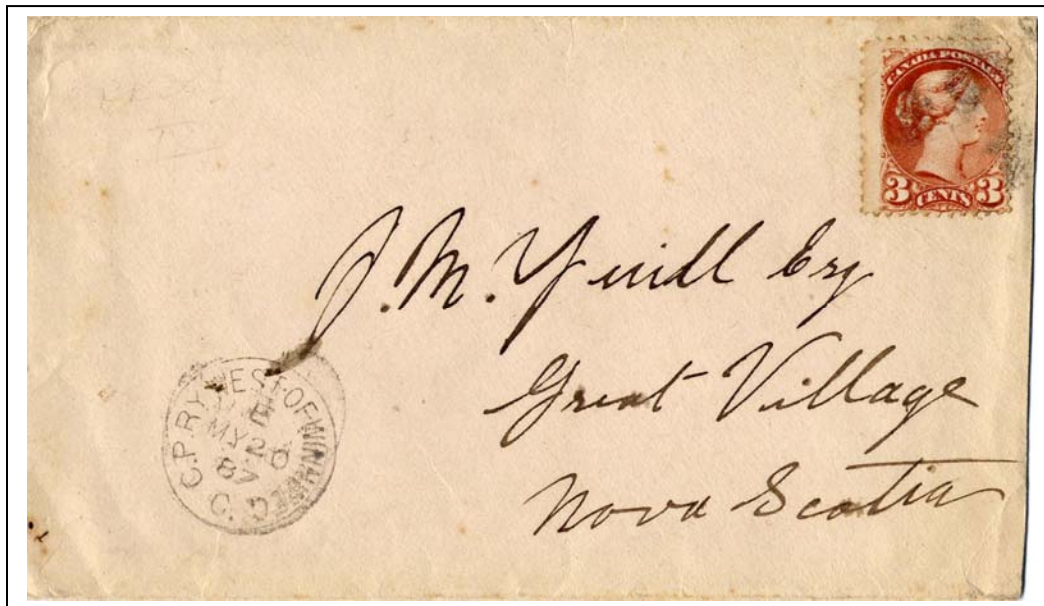 CANADA POSTAGE
3 CENTS 3
J. M. Esq
Great Village
Nova Scotia
C.P.RY. WEST-OF-WINNIPEG
E
MY 20
87
C.